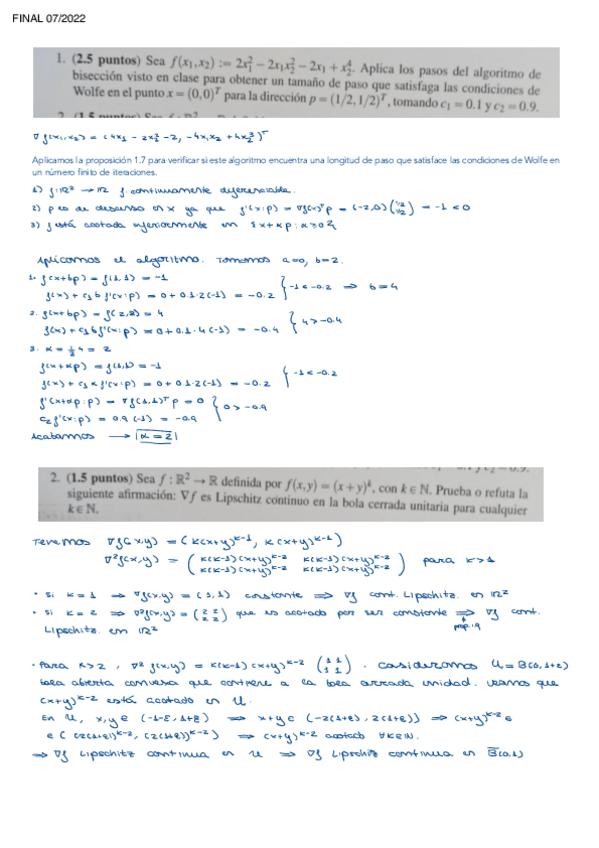 FINAL 07/2022
1. (2.5 puntos) Sea f(x₁,x₂) := 2x₁² − 2x₁x₂² − 2x₁ + x₂⁴. Aplica los pasos del algoritmo de
bisección visto en clase para obtener un tamaño de paso que satisfaga las condiciones de
Wolfe en el punto x = (0,0)ᵀ para la dirección p = (1/2, 1/2)ᵀ, tomando c₁ = 0.1 y c₂ = 0.9.
∇f(x₁,x₂) = (4x₁ − 2x₂² − 2, −4x₁x₂ + 4x₂³)ᵀ
Aplicamos la proposición 1.7 para verificar si este algoritmo encuentra una longitud de paso que satisface las condiciones de Wolfe en
un número finito de iteraciones.
1) f: ℝ² → ℝ f continuamente diferenciable.
2) p es de descenso en x ya que f'(x;p) = ∇f(x)ᵀp = (−2,0)(1/2 1/2) = −1 < 0
3) f está acotada inferiormente en {x + αp : α ≥ 0}
Aplicamos el algoritmo. Tomamos a=0, b=2.
1. f(x+bp) = f(1,1) = −1
f(x) + c₁ b f'(x;p) = 0 + 0.1·2(−1) = −0.2 } −1 < −0.2 ⇒ b=4
2. f(x+bp) = f(2,2) = 4
f(x) + c₁ b f'(x;p) = 0 + 0.1·4(−1) = −0.4 } 4 > −0.4
3. α = ½ 4 = 2
f(x+αp) = f(1,1) = −1
f(x) + c₁ α f'(x;p) = 0 + 0.1·2(−1) = −0.2 } −1 < −0.2
f'(x+αp;p) = ∇f(1,1)ᵀ p = 0
c₂ f'(x;p) = 0.9 (−1) = −0.9 } 0 > −0.9
Acabamos → |α = 2|
2. (1.5 puntos) Sea f : ℝ² → ℝ definida por f(x,y) = (x+y)ᵏ, con k ∈ ℕ. Prueba o refuta la
siguiente afirmación: ∇f es Lipschitz continuo en la bola cerrada unitaria para cualquier
k ∈ ℕ.
Tenemos ∇f(x,y) = (k(x+y)ᵏ⁻¹, k(x+y)ᵏ⁻¹)
∇²f(x,y) = (k(k−1)(x+y)ᵏ⁻² k(k−1)(x+y)ᵏ⁻²
k(k−1)(x+y)ᵏ⁻² k(k−1)(x+y)ᵏ⁻²) para k>1
· Si k=1 ⇒ ∇f(x,y) = (1,1) constante ⇒ ∇f cont. Lipschitz. en ℝ²
· Si k=2 ⇒ ∇²f(x,y) = (2 2 2 2) que es acotado por ser constante ⇒ ∇f cont.
Lipschitz. en ℝ²
prop. 1.9
· Para k>2, ∇²f(x,y) = k(k−1)(x+y)ᵏ⁻² (1 1 1 1). Consideramos U = B(0,1+ε)
bola abierta convexa que contiene a la bola cerrada unidad. Veamos que
(x+y)ᵏ⁻² está acotado en U.
En U, x,y ∈ (−1−ε, 1+ε) ⇒ x+y ∈ (−2(1+ε), 2(1+ε)) ⇒ (x+y)ᵏ⁻² ∈
∈ (−(2(1+ε))ᵏ⁻², (2(1+ε))ᵏ⁻²) ⇒ (x+y)ᵏ⁻² acotado ∀k∈ℕ.
⇒ ∇f Lipschitz continua en U ⇒ ∇f Lipschitz continua en B̄(0,1)